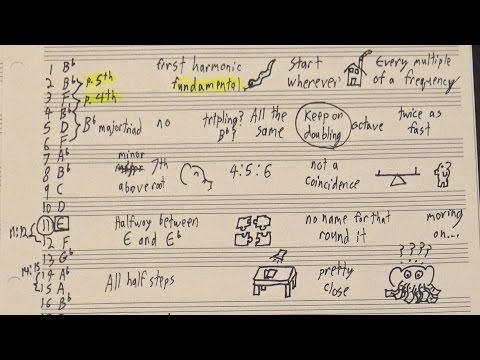 first harmonic Start Every multiple
1 B♭ fundamental wherever of a frequency
2 B♭ p. 5th
3 F p. 4th
4 B♭ tripling? All the Keep on twice as
5 D B♭ major triad no B♭? same doubling octave fast
6 F
7 A♭ minor 7th 4:5:6 not a
8 B♭ above root coincidence
9 C
10 D
11 E Halfway between no name for that moving
11:12 12 F E and E♭ round it on...
13 G♭ ????
14:15 14 A♭ All half steps pretty
15 A close
16 B♭